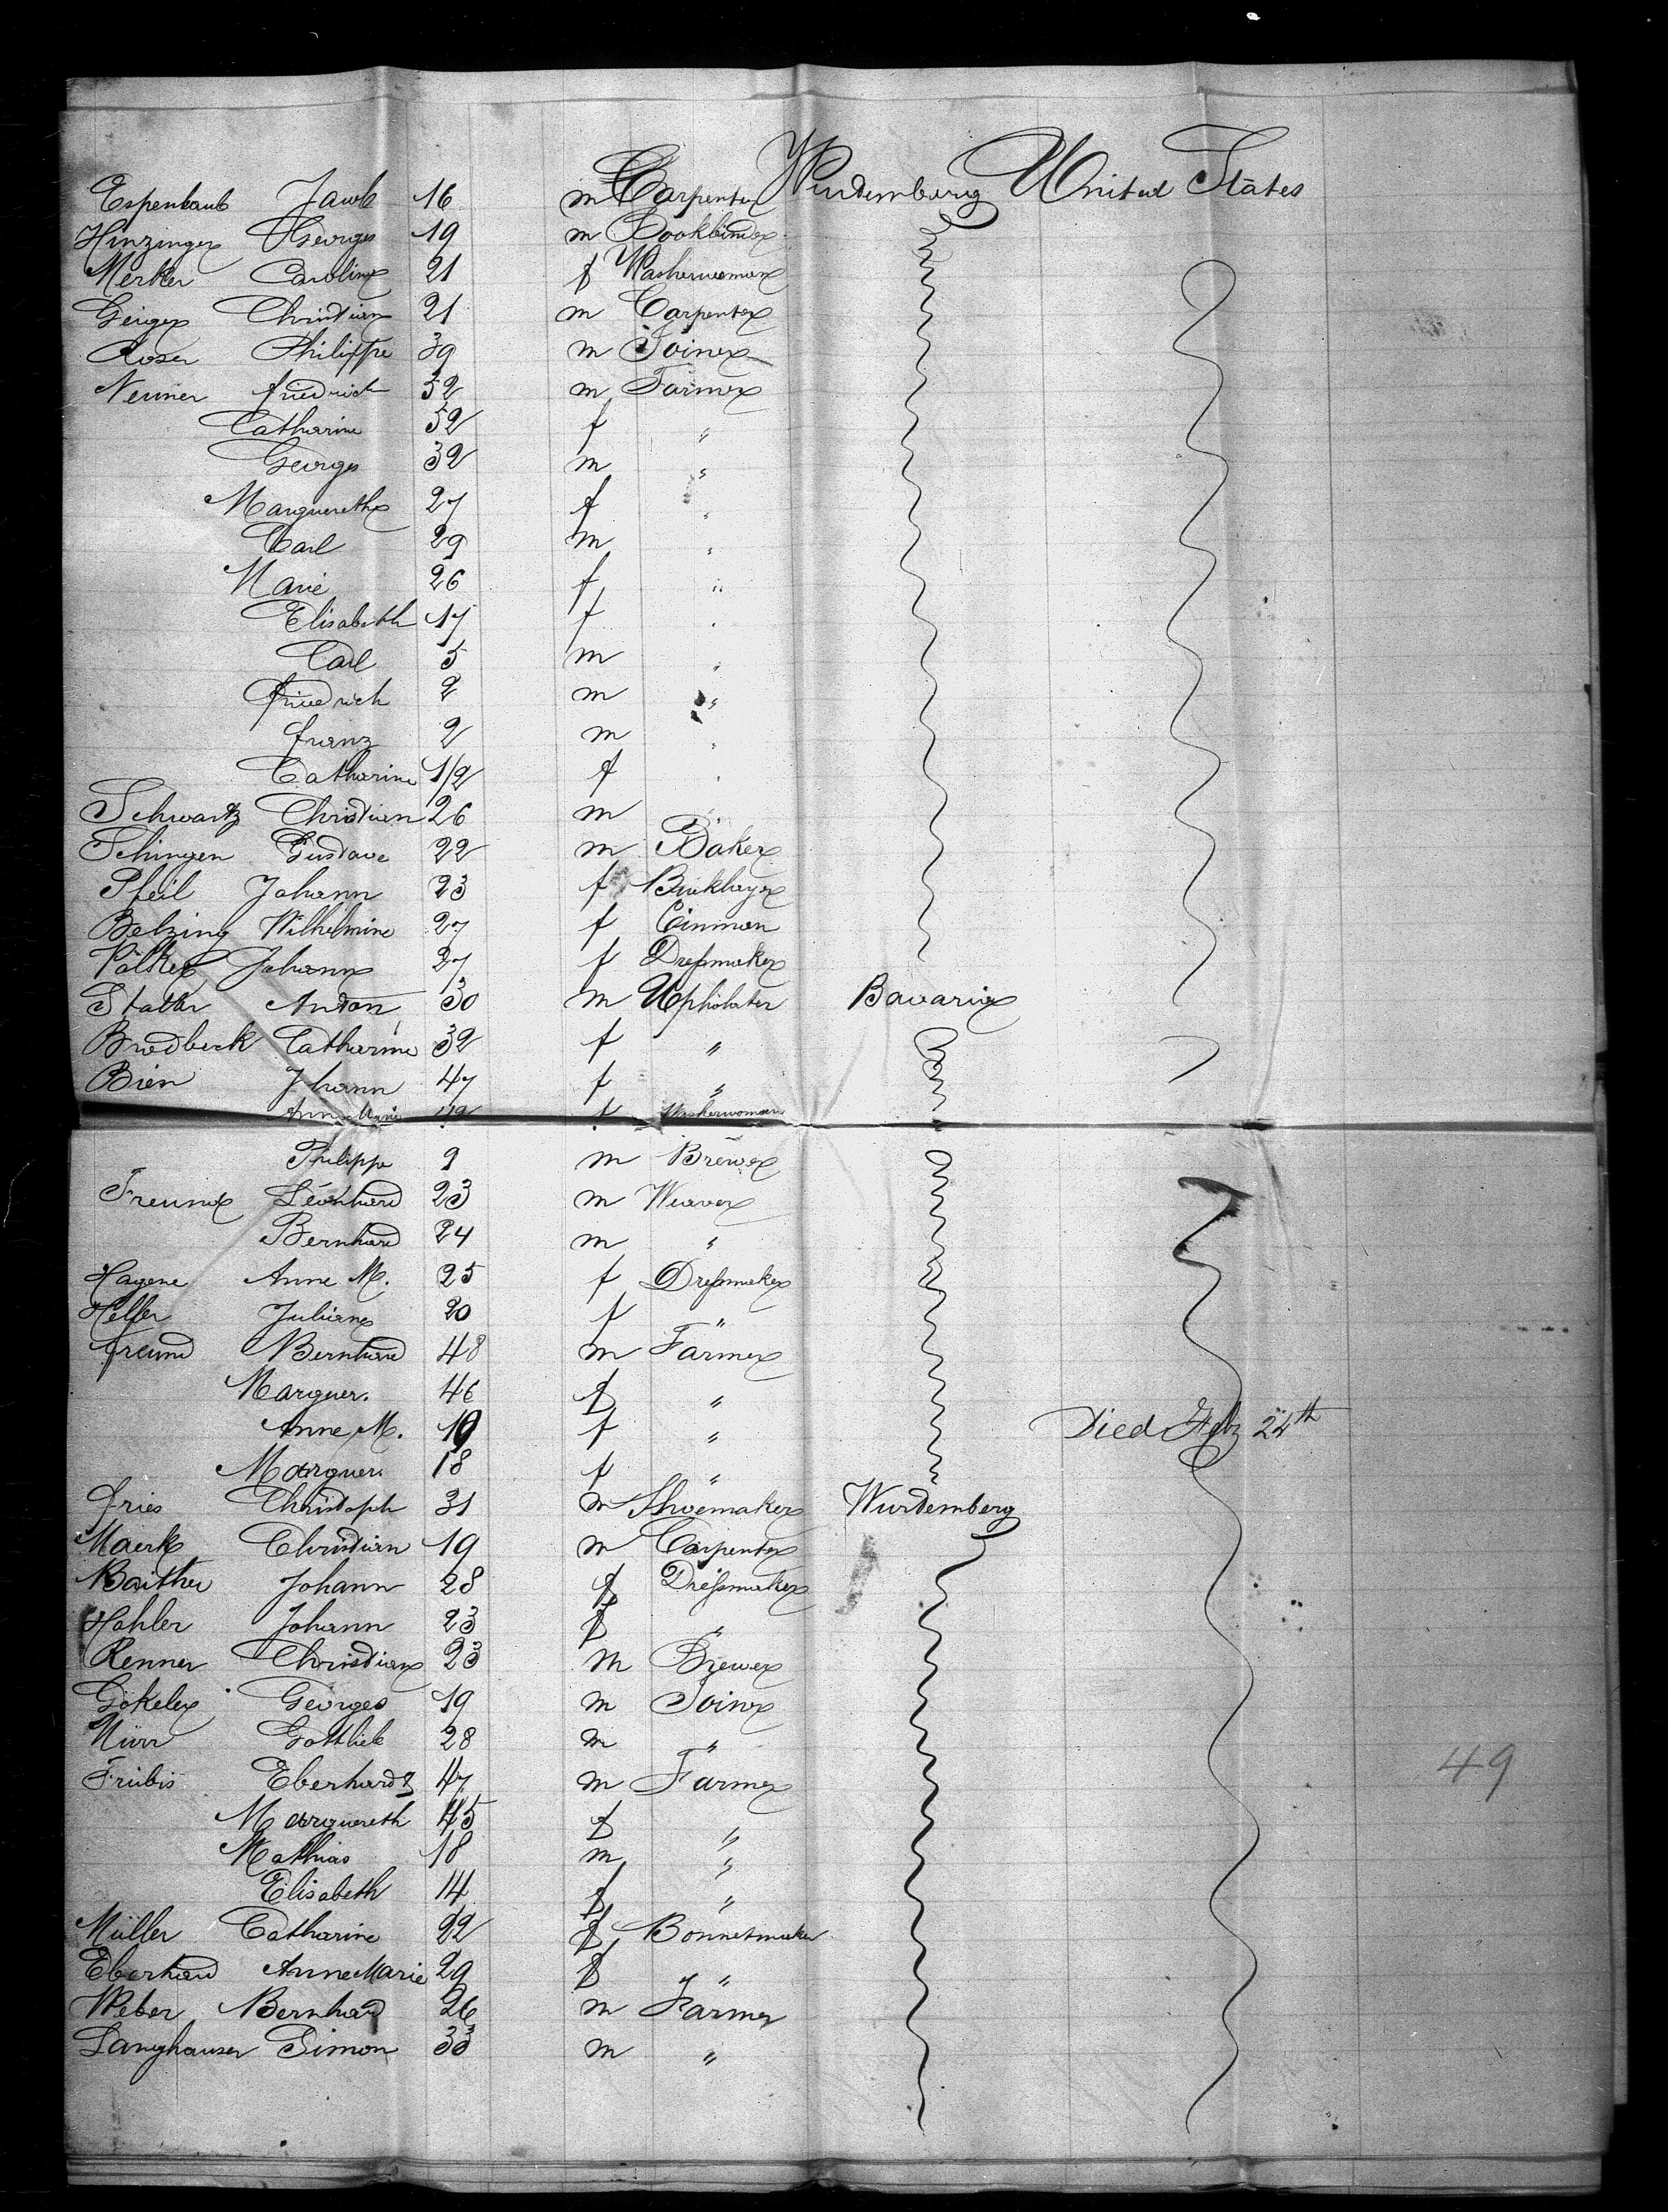 Espenlaub Jacob 16 m Carpenter Wurdemberg United States
Hinzinger Georges 19 m Bookbinder
Merker Caroline 21 f Washerwoman
Geiger Christian 21 m Carpenter
Roser Philippe 39 m Joiner
Neuner friedrich 52 m Farmer
Catharine 52 f "
Georges 32 m "
Marguerethe 27 f "
Carl 29 m "
Marie 26 f "
Elisabeth 17 f "
Carl 5 m "
friedrich 2 m "
franz 2 m "
Catharine 1/2 f "
Schwartz Christian 26 m "
Schingen Gustave 22 m Baker
Pfeil Johann 23 f Bricklayer
Belzing Wilhelmine 27 f
Völker Johann 27 f Dressmaker
Statter Andon 30 m Upholster Bavaria
Brodbeck Catharine 32 f "
Bien Jhann 47 f "
Ann Marie f Washerwoman
Philippe 9 m Brewer
Freund Léonhard 23 m Weaver
Bernhard 24 m "
Hagene Anne M. 25 f Dressmaker
Heller Juliane 20 f "
freund Bernhard 48 m Farmer
Marguer. 46 f "
Anne M. 19 f " Died Feb 24th
Marguer. 18 f "
fries Christoph 31 m Shoemaker Wurdemberg
Maerk Christian 19 m Carpenter
Baither Johann 28 f Dressmaker
Hahler Johann 23 f "
Renner Christian 23 m Brewer
Gökeler Georges 19 m Joiner
Nürr Gottlieb 28 m "
Frübis Eberhard 47 m Farmer
49
Marguereth 45 f "
Mathias 18 m "
Elisabeth 14 f "
Müller Catharine 22 f Bonnetmaker
Eberhard Anne Marie 29 f "
Weber Bernhard 26 m Farmer
Langhauser Simon 33 m "